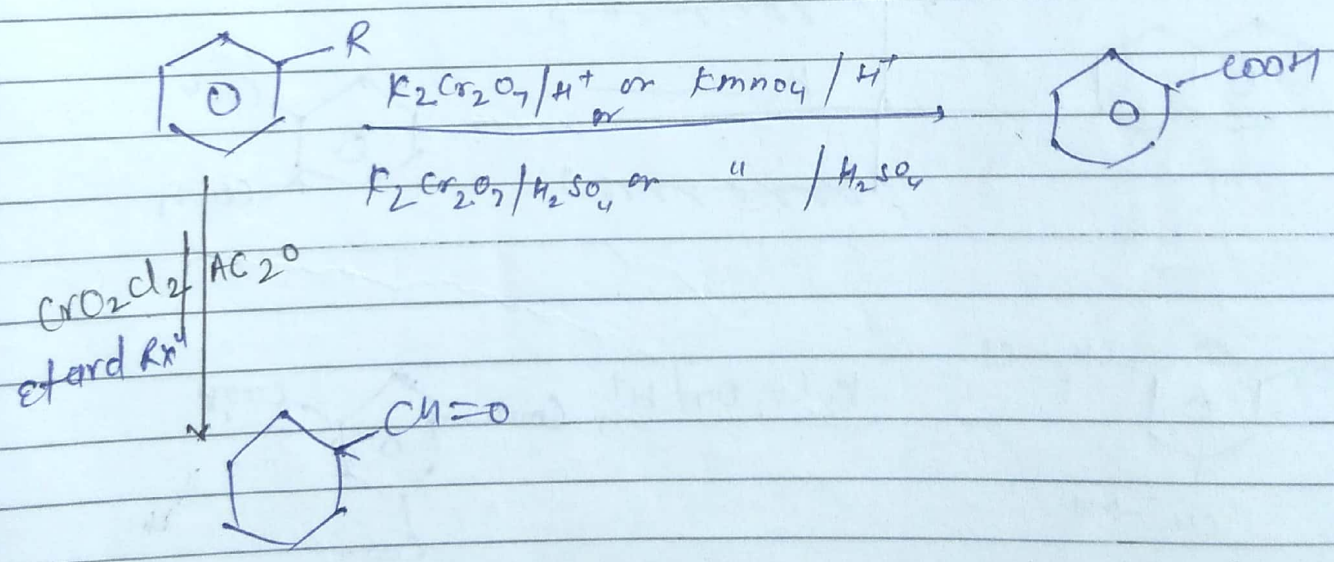 R
K₂Cr₂O₇/H⁺ or KMnO₄/H⁺
or
K₂Cr₂O₇/H₂SO₄ or " /H₂SO₄
COOH
CrO₂Cl₂/AC₂O
etard Rxⁿ
CH=O